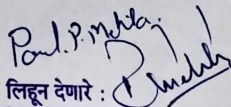 Paul. P. Mehta.
लिहून देणारे :